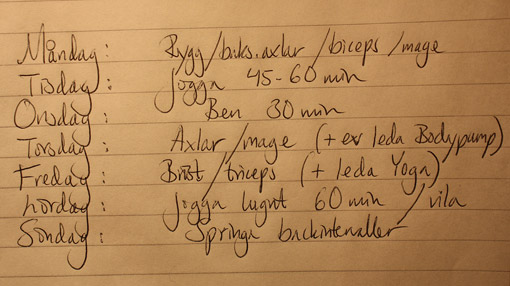 Måndag: Rygg/baks.axlar/biceps/mage
Tisdag: jogga 45-60 min
Onsdag: Ben 30 min
Torsdag: Axlar/mage (+ ev leda Bodypump)
Fredag: Bröst/triceps (+ leda Yoga)
Lördag: jogga lugnt 60 min/vila
Söndag: Springa backintervaller